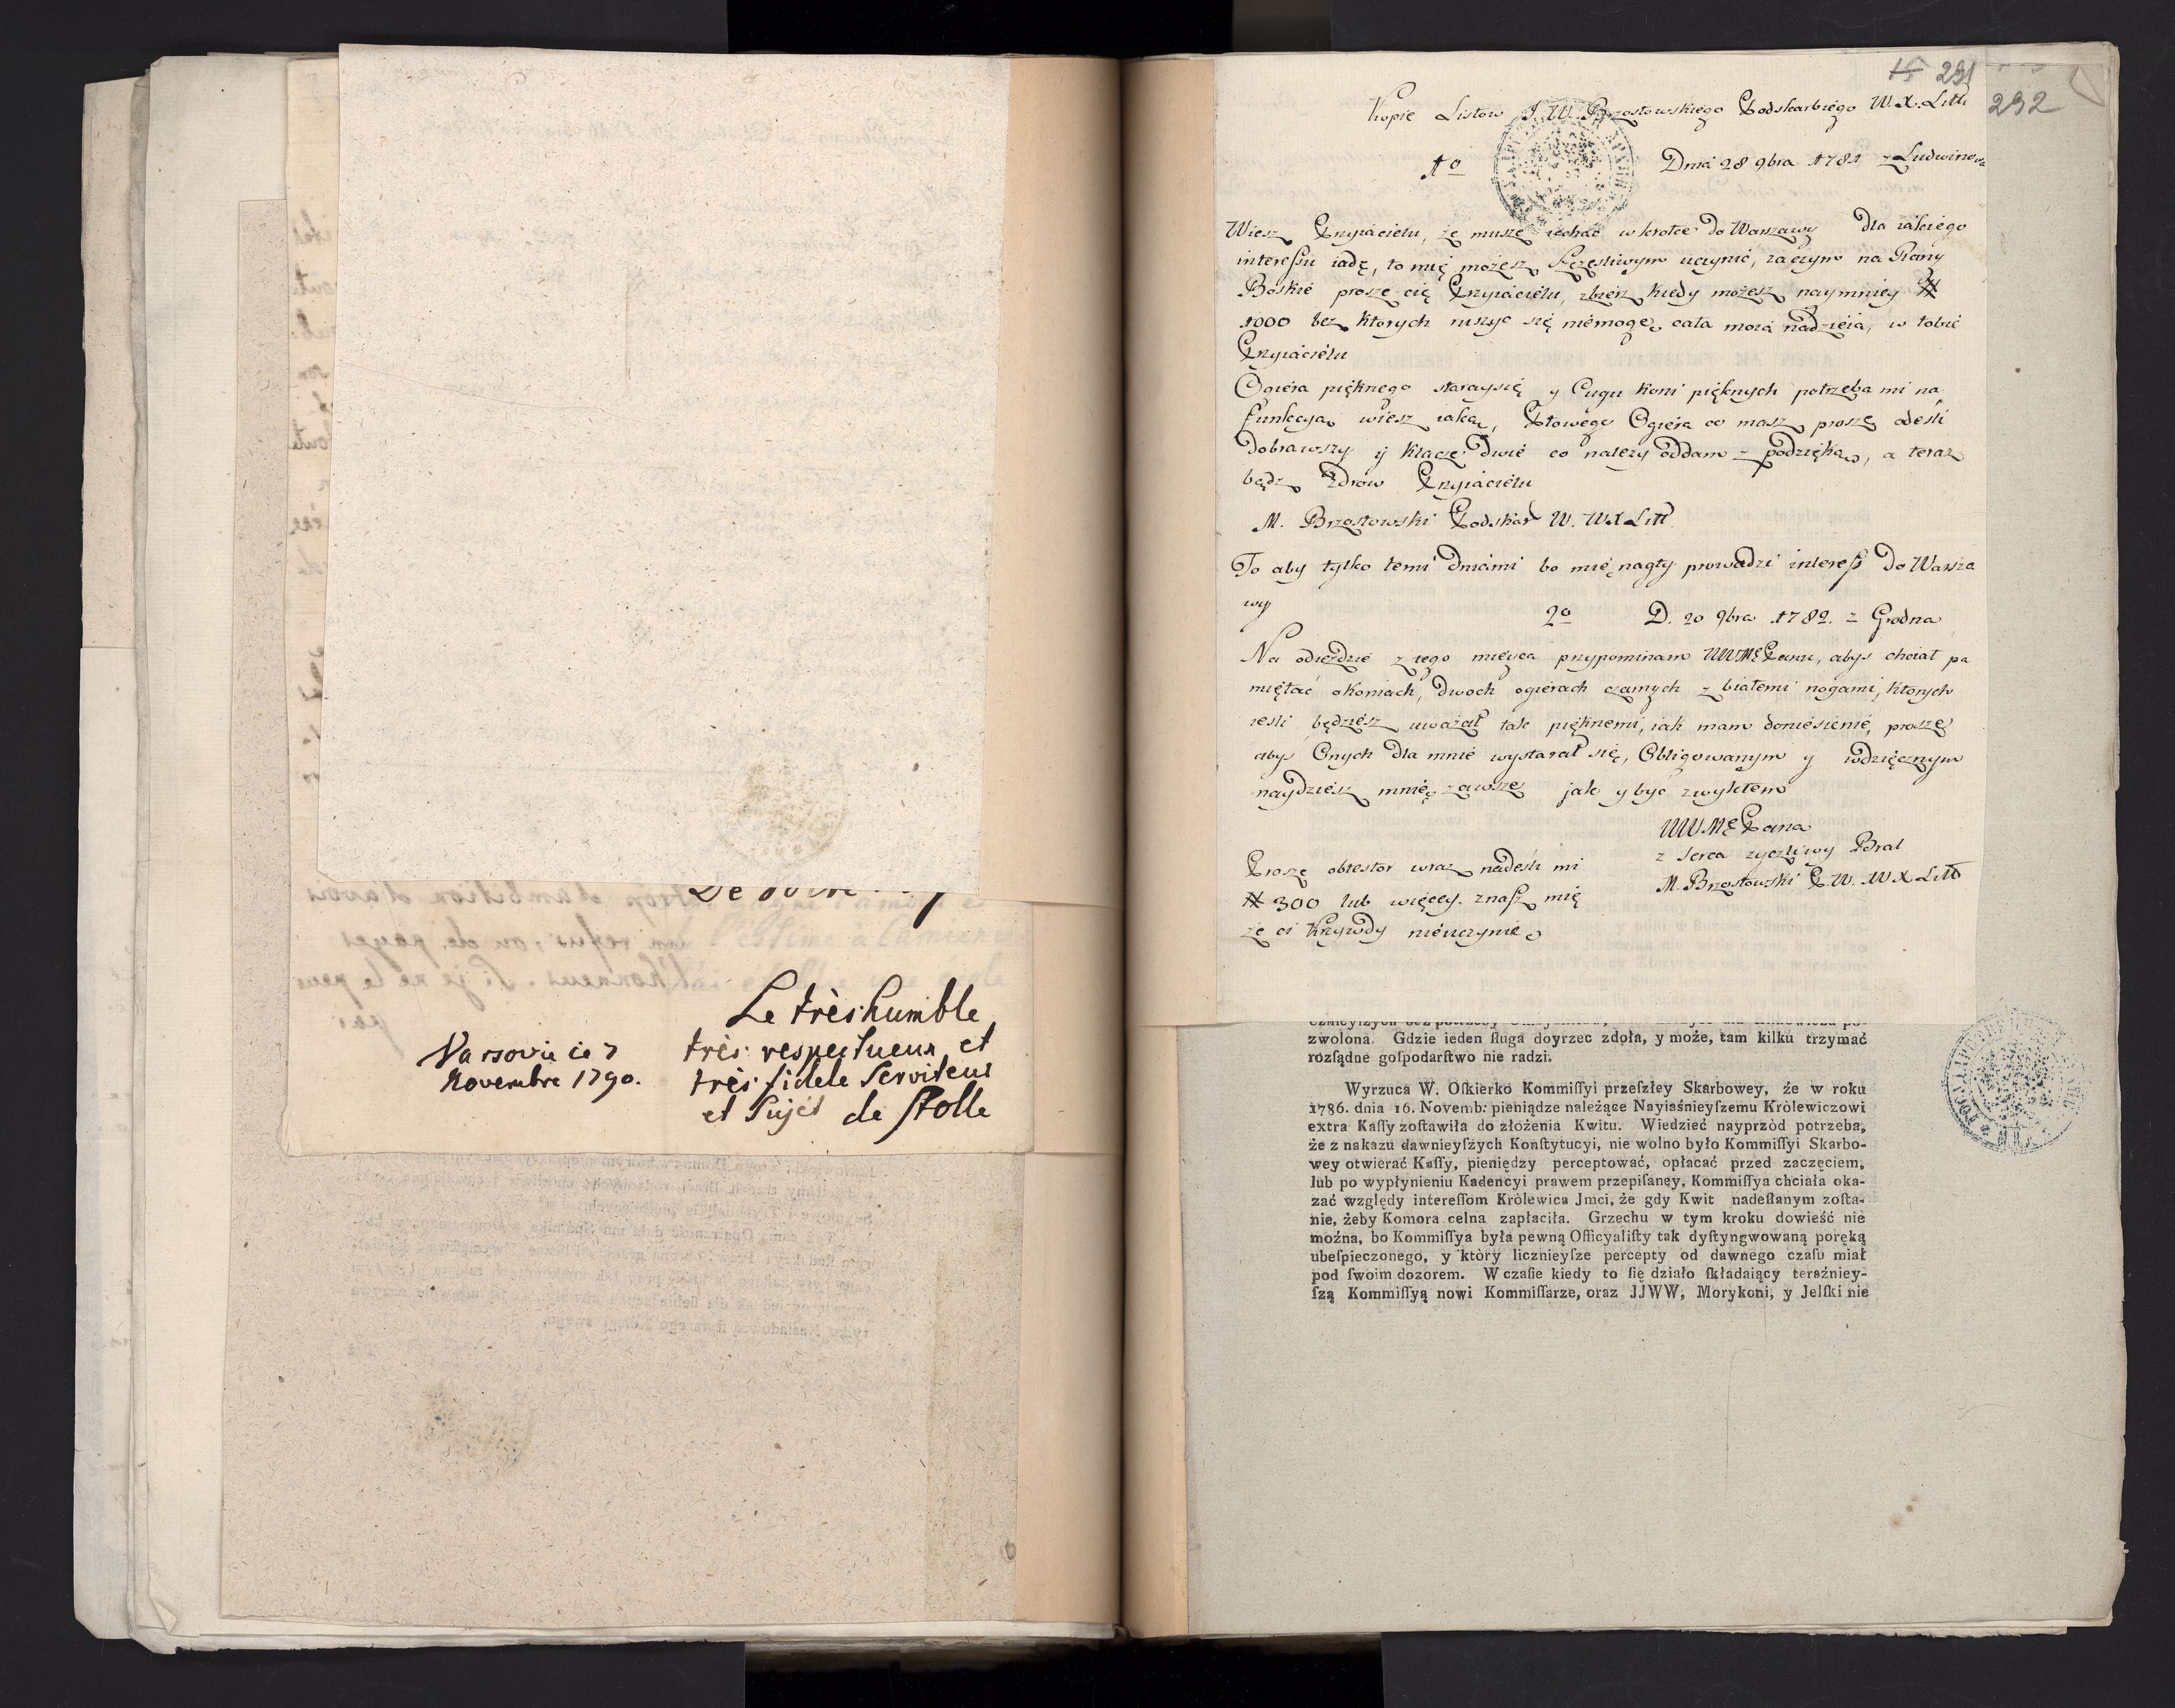 De votre
Le très humble
très respectueux et
très fidele Serviteur
et Sujet de Stolle
Varsovie ce 7
Novembre 1790.
15 291
292
Kopie Listow J. W. Brzostowskiego Podskarbiego W. X. Litt
1o Dnia 28 9bra 1781 z Ludwinowa
Wiesz Przyiacielu, ze muszę iechać wkrotce do Warszawy dla iakiego
interessu iadę, to mię możesz szczęsliwym uczynić, zaczym na Rany
Boskie proszę cię Przyiacielu, zbierz kiedy możesz naymniey #
1000 bez ktorych ruszyc się niemogę, cała moia nadzieia, w tobie
Przyiacielu
Ogiera pięknego staraysię y Cugu koni pięknych potrzeba mi na
funkcyą wiesz iaką, Płowego Ogiera co masz proszę odesli
dobrawszy y klacze dwie co nalezy oddam z podzięką, a teraz
bądz zdrow Przyiacielu
M. Brzostowski Podskar W. W X Litt
To aby tylko temi dniami bo mię nagły prowadzi interess do Warsza
wy
2o D. 20 9bra 1782. z Grodna
Na odieździe z tego mieysca przypominam WWMC Panu, abys chciał pa
miętać o koniach, dwoch ogierach czarnych z białemi nogami, ktorych
iesli będziesz uważał tak pięknemi, iak mam doniesienie, proszę
abys Onych dla mnie wystarał się, Obligowanym y wdzięcznym
naydziesz mnię zawsze jak y byc zwykłem
WWMC Pana
z serca zyczliwy Brat
M. Brzostowski P. W. W X Litt
Proszę obtestor wraz nadesli mi
# 300 lub więcey. znasz mię
że ci krzywdy nieuczynię
zwolona. Gdzie ieden ſługa doyrzec zdoła, y może, tam kilku trzymać
rozſądne goſpodarſtwo nie radzi.
Wyrzuca W. Oſkierko Kommiſſyi przeſzłey Skarbowey, że w roku
1786. dnia 16. Novemb: pieniądze należące Nayiaśnieyſzemu Królewiczowi
extra Kaſſy zoſtawiła do złożenia Kwitu. Wiedzieć nayprzòd potrzeba,
że z nakazu dawnieyſzych Konſtytucyi, nie wolno było Kommiſſyi Skarbo-
wey otwierać Kaſſy, pieniędzy perceptować, opłacać przed zaczęciem,
lub po wypłynieniu Kadencyi prawem przepiſaney. Kommiſſya chciała oka-
zać względy intereſſom Królewica Jmci, że gdy Kwit nadeſłanym zoſta-
nie, żeby Komora celna zapłaciła. Grzechu w tym kroku dowieść nie
można, bo Kommiſſya była pewną Officyaliſty tak dyſtyngwowaną poręką
ubeſpieczonego, y który licznieyſze percepty od dawnego czaſu miał
pod ſwoim dozorem. W czaſie kiedy to ſię działo ſkładaiący teraźniey-
ſzą Kommiſſyą nowi Kommiſſarze, oraz JJWW, Morykoni, y Jelſki nie